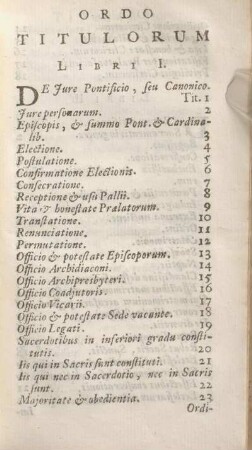 ORDO
TITULORUM
LIBRI I.
DE Jure Pontificio, seu Canonico.
Tit. 1
Jure personarum. 2
Episcopis, & summo Pont. & Cardina-
lib. 3
Electione. 4
Postulatione. 5
Confirmatione Electionis. 6
Consecratione. 7
Receptione & usu Pallii. 8
Vita & honestate Prælatorum. 9
Translatione. 10
Renunciatione. 11
Permutatione. 12
Officio & potestate Episcoporum. 13
Officio Archidiaconi. 14
Officio Archipresbyteri. 15
Officio Coadjutoris. 16
Officio Vicarii. 17
Officio & potestate Sede vacante. 18
Officio Legati. 19
Sacerdotibus in inferiori gradu consti-
tutis. 20
Iis qui in Sacris sunt constituti. 21
Iis qui nec in Sacerdotio, nec in Sacris
sunt. 22
Majoritate & obedientia. 23
Ordi-